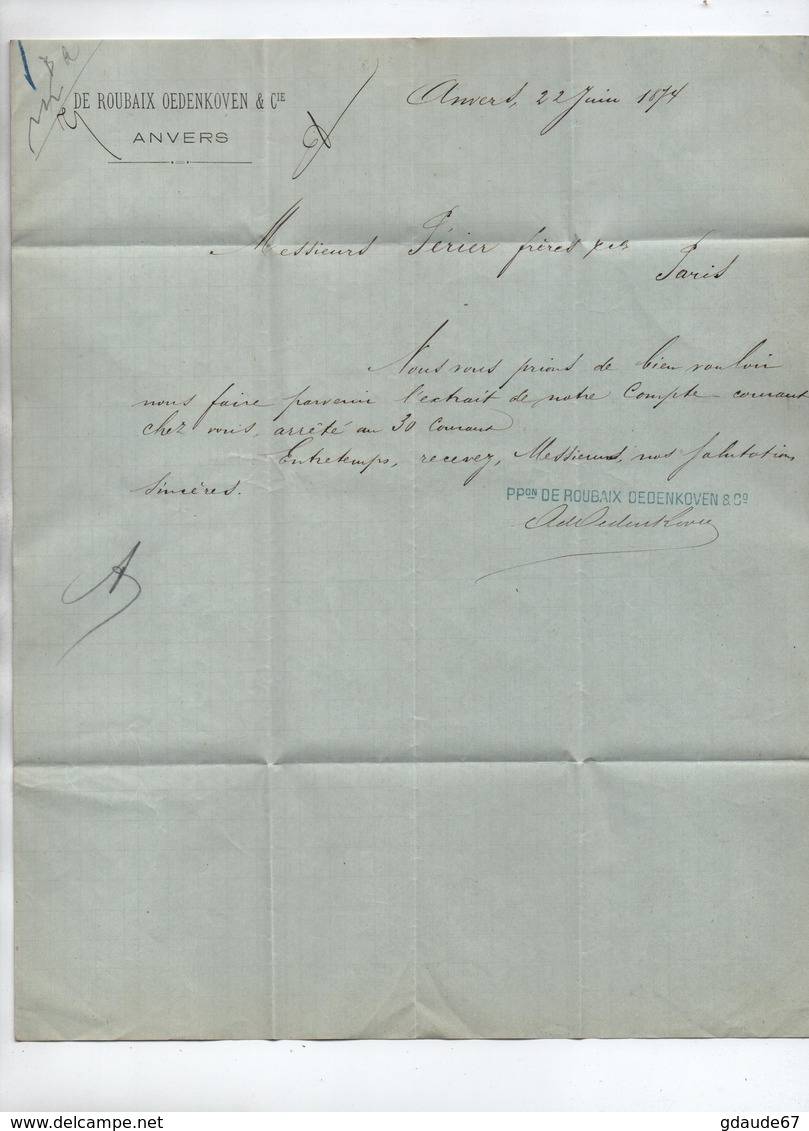 DE ROUBAIX OEDENKOVEN & CIE
ANVERS
Anvers, 22 Juin 1874
Messieurs Périer frères
Paris
Nous vous prions de bien vouloir
nous faire parvenir l'extrait de notre Compte courant
chez vous, arrêté au 30 Courant
Entretemps, recevez, Messieurs, nos salutations
sincères.
PPON DE ROUBAIX OEDENKOVEN & CO
Ad Oedenkoven
delcampe.net
gdaude67